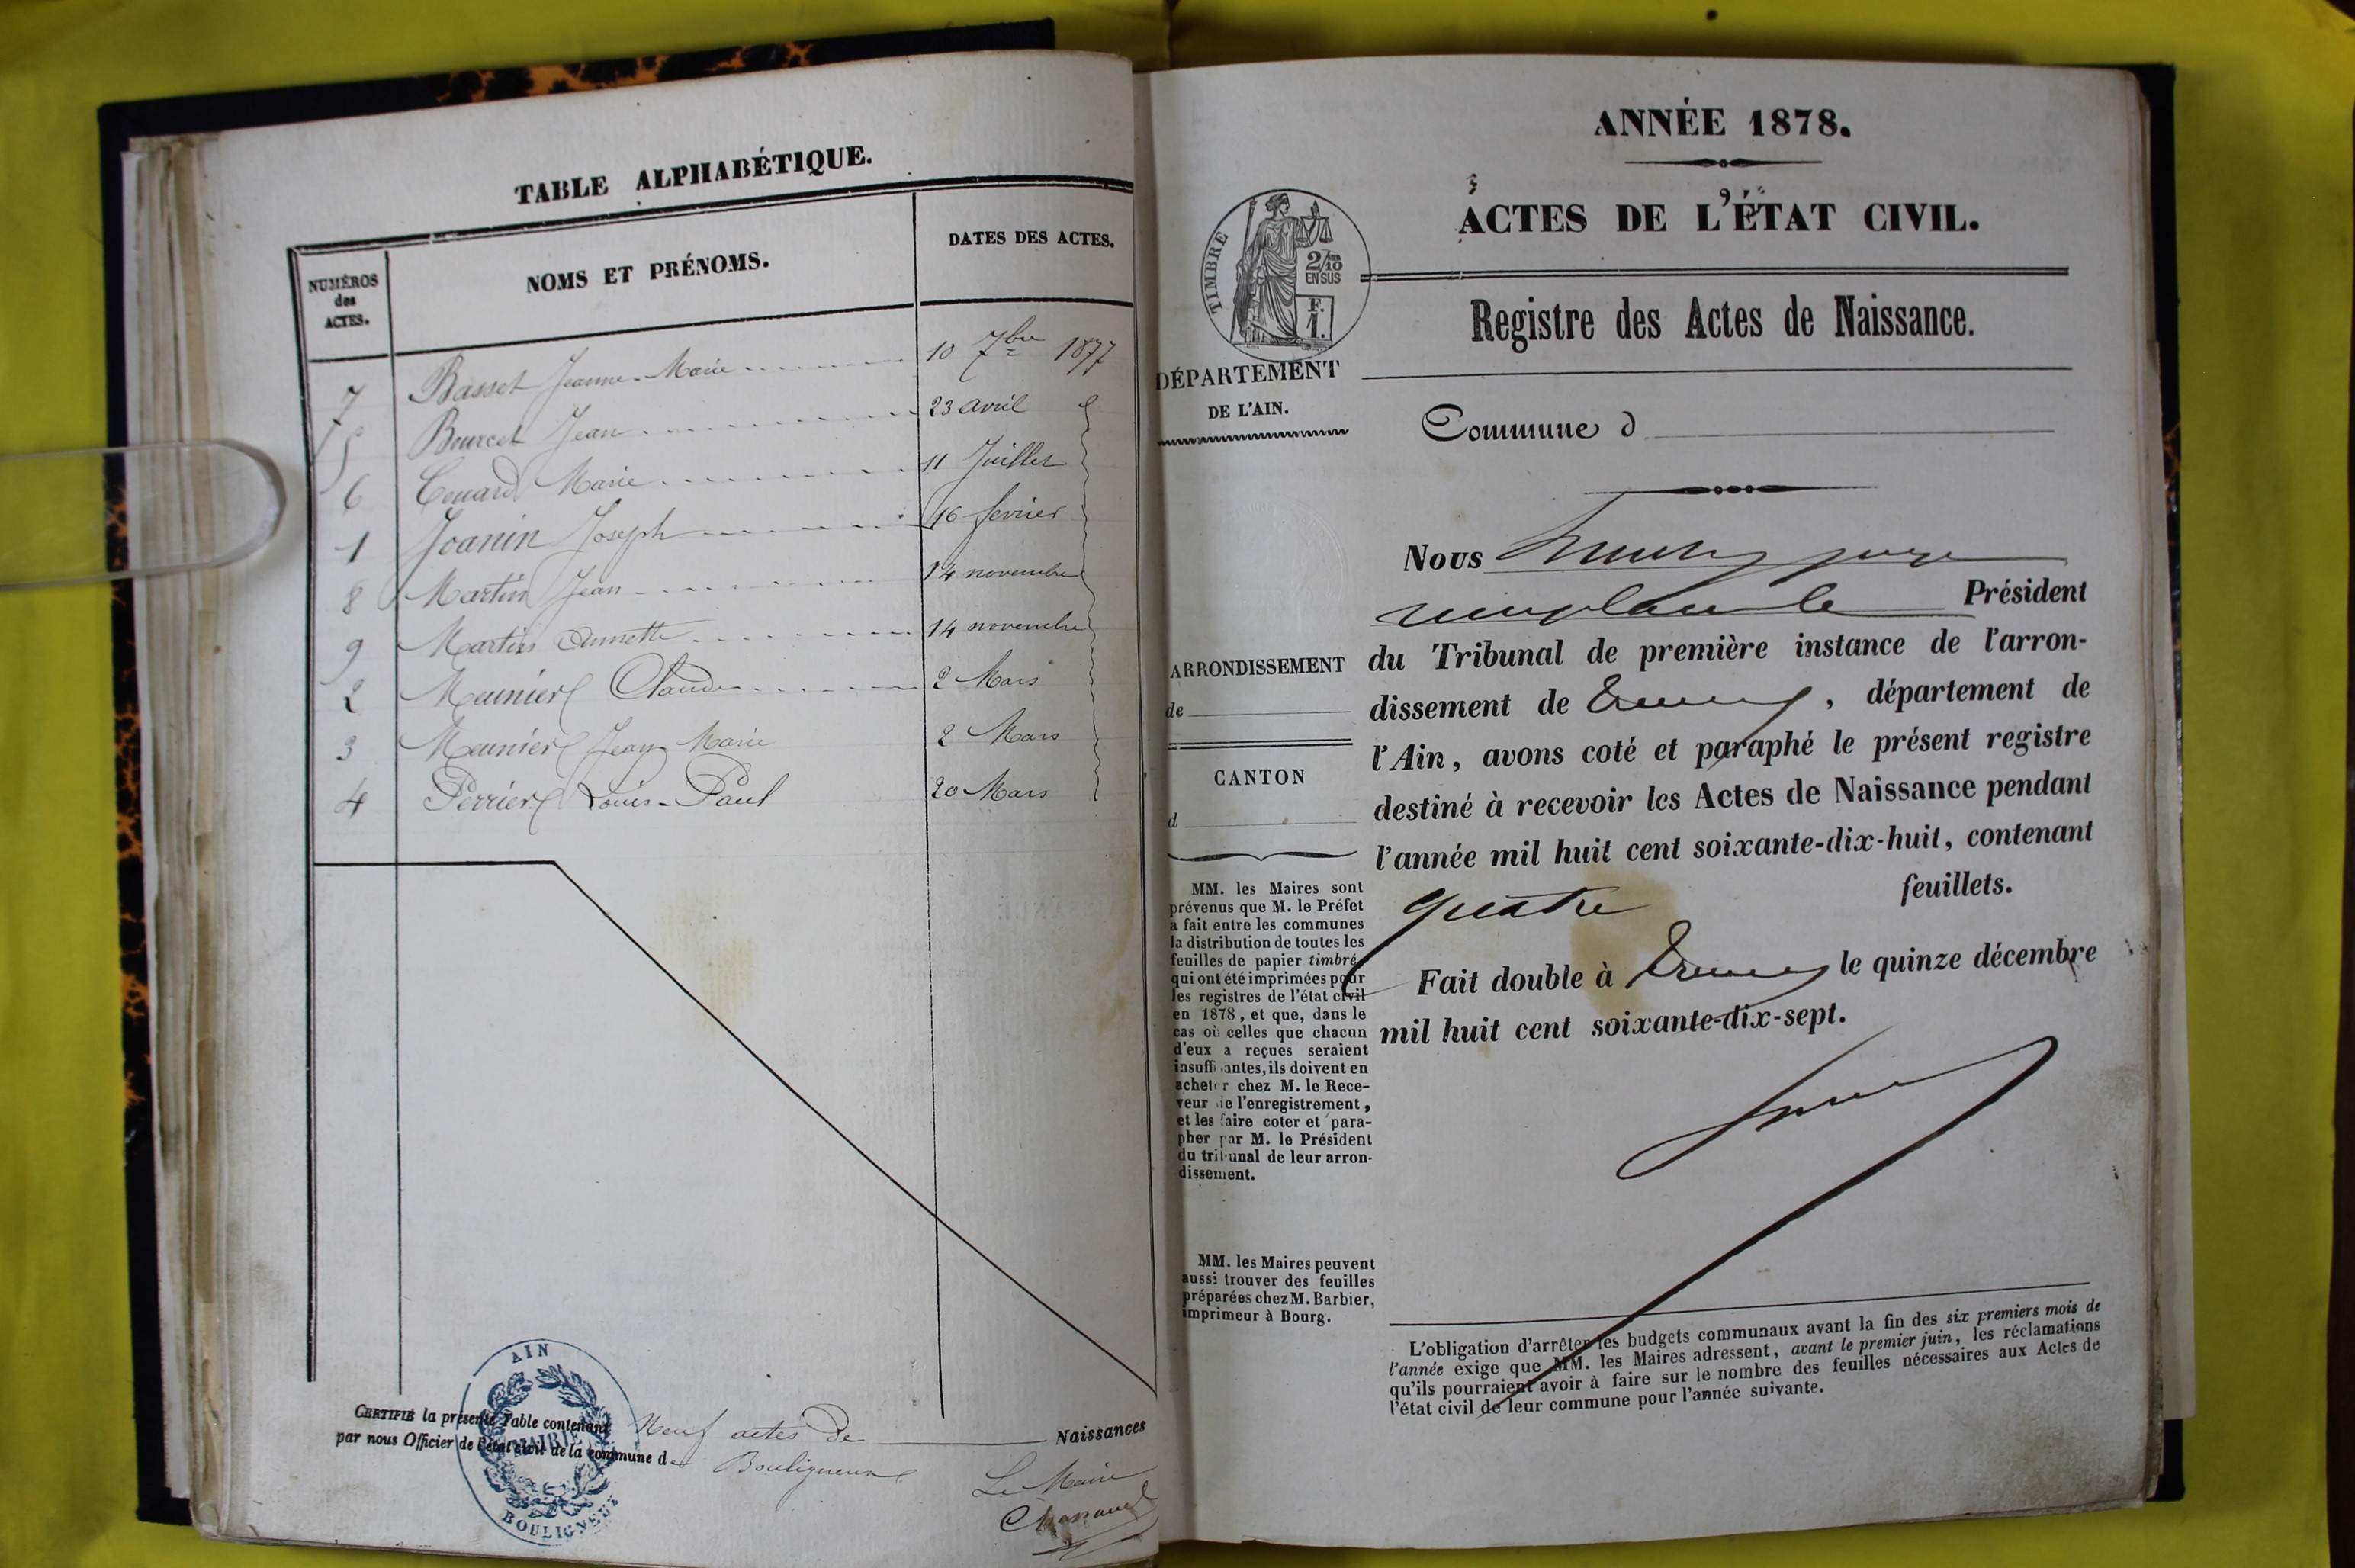 TABLE ALPHABÉTIQUE.
NUMÉROS des ACTES.
NOMS ET PRÉNOMS.
DATES DES ACTES.
7 Basset Jeanne-Marie 10 7bre 1877
5 Bourcet Jean 23 avril
6 Couard Marie 11 Juillet
1 Joanin Joseph 16 fevrier
8 Martin Jean 14 novembre
9 Martin Annette 14 novembre
2 Meunier Claude 2 Mars
3 Meunier Jean Marie 2 Mars
4 Perrier Louis-Paul 20 Mars
CERTIFIÉ la présente Table contenant Neuf actes de Naissances
par nous Officier de l'état civil de la commune de Bouligneux
Le Maire
AIN
MAIRIE
BOULIGNEUX
ANNÉE 1878.
ACTES DE L'ÉTAT CIVIL.
Registre des Actes de Naissance.
TIMBRE
2/10
EN SUS
F.
1.
DÉPARTEMENT
DE L'AIN.
Commune d
ARRONDISSEMENT
de
CANTON
d
MM. les Maires sont
prévenus que M. le Préfet
a fait entre les communes
la distribution de toutes les
feuilles de papier timbré
qui ont été imprimées pour
les registres de l'état civil
en 1878, et que, dans le
cas où celles que chacun
d'eux a reçues seraient
insuffisantes, ils doivent en
acheter chez M. le Rece-
veur de l'enregistrement,
et les faire coter et para-
pher par M. le Président
du tribunal de leur arron-
dissement.
MM. les Maires peuvent
aussi trouver des feuilles
préparées chez M. Barbier,
imprimeur à Bourg.
Nous juge
remplaçant le Président
du Tribunal de première instance de l'arron-
dissement de Trévoux, département de
l'Ain, avons coté et paraphé le présent registre
destiné à recevoir les Actes de Naissance pendant
l'année mil huit cent soixante-dix-huit, contenant
quatre feuillets.
Fait double à Trévoux le quinze décembre
mil huit cent soixante-dix-sept.
L'obligation d'arrêter les budgets communaux avant la fin des six premiers mois de
l'année exige que MM. les Maires adressent, avant le premier juin, les réclamations
qu'ils pourraient avoir à faire sur le nombre des feuilles nécessaires aux Actes de
l'état civil de leur commune pour l'année suivante.